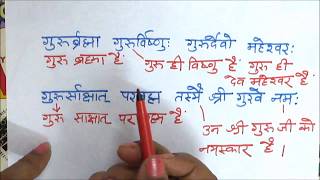 गुरुर्ब्रह्मा गुरुर्विष्णुः गुरुर्देवो महेश्वरः
गुरु ब्रह्मा हैं गुरु ही विष्णु हैं गुरु ही
देव महेश्वर हैं
गुरुर्साक्षात् परब्रह्म तस्मै श्री गुरवे नमः
गुरु साक्षात् परब्रह्म हैं उन श्री गुरु जी को
नमस्कार है।